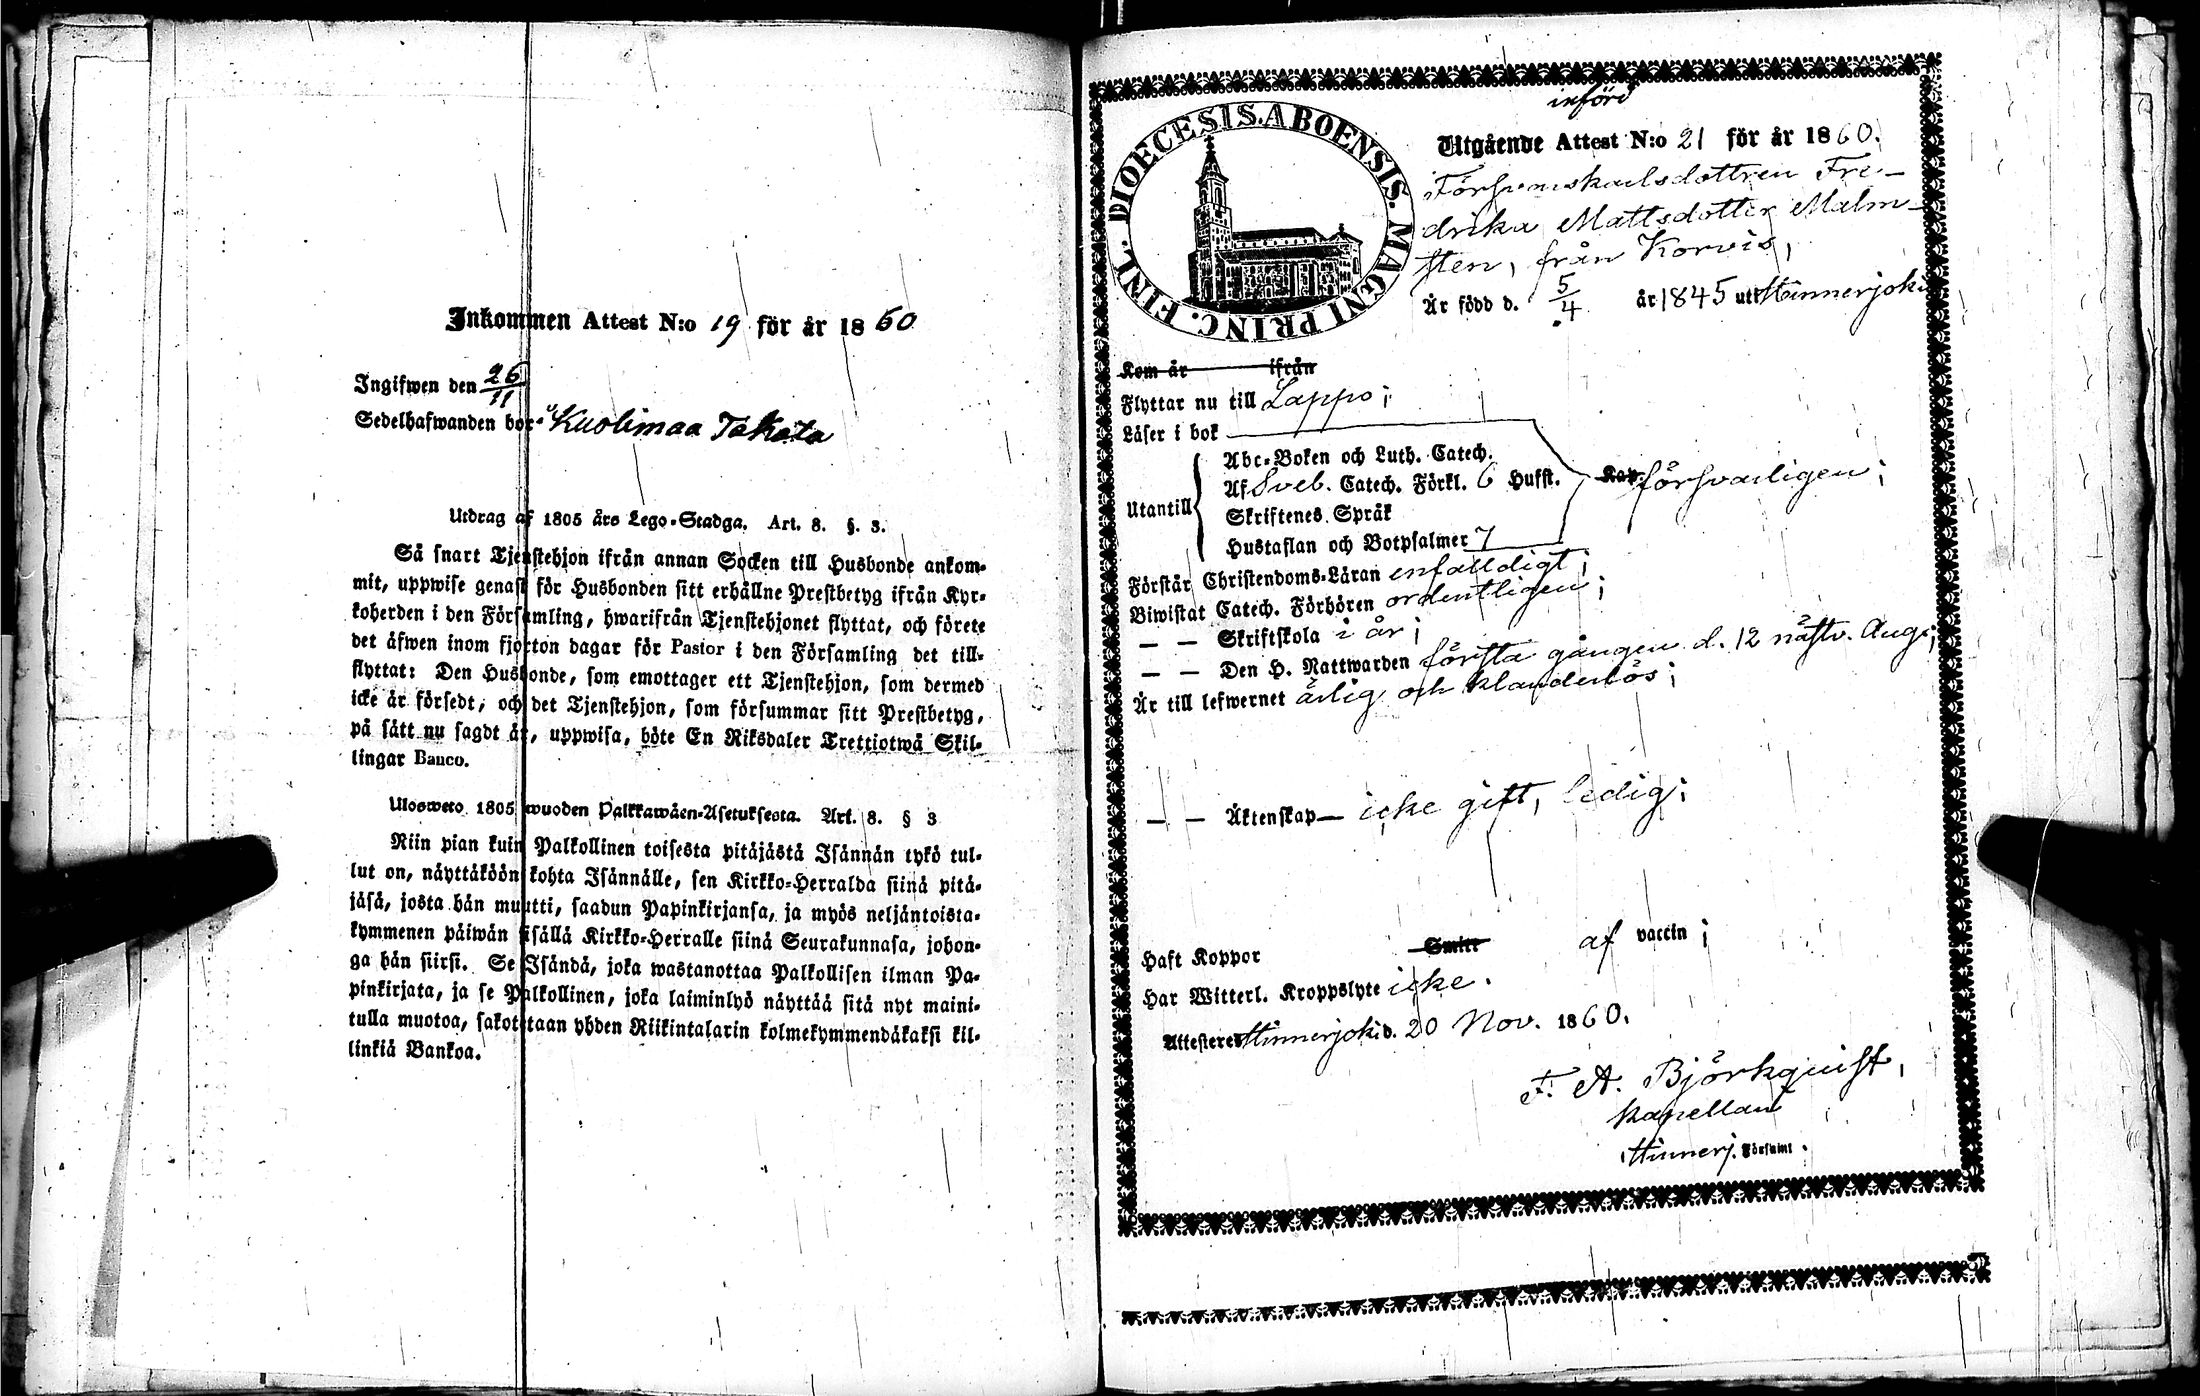 Inkommen Attest N:o 19 för år 1860
Ingifwen den 26/11
Sedelhafwanden bor i Kuolimaa Takala
Utdrag af 1805 års Lego-Stadga. Art. 8. §. 3.
Så snart Tjenstehjon ifrån annan Socken till Husbonde ankom-
mit, uppwise genast för Husbonden sitt erhållne Prestbetyg ifrån Kyr-
koherden i den Församling, hwarifrån Tjenstehjonet flyttat, och förete
det äfwen inom fjorton dagar för Pastor i den Församling det till-
flyttat: Den Husbonde, som emottager ett Tjenstehjon, som dermed
icke är försedt, och det Tjenstehjon, som försummar sitt Prestbetyg,
på sätt nu sagdt är, uppwisa, böte En Riksdaler Trettiotwå Skil-
lingar Banco.
Ulosweto 1805 wuoden Palkkawäen-Asetuksesta. Art. 8. § 3
Niin pian kuin Palkollinen toisesta pitäjästä Isännän tykö tul-
lut on, näyttäköön kohta Isännälle, sen Kirkko-Herralda siinä pitä-
jäsä, josta hän muutti, saadun Papinkirjansa, ja myös neljäntoista-
kymmenen päiwän sisällä Kirkko-Herralle siinä Seurakunnasa, johon-
ga hän siirsi. Se Isändä, joka wastanottaa Palkollisen ilman Pa-
pinkirjata, ja se Palkollinen, joka laiminlyö näyttää sitä nyt maini-
tulla muotoa, sakotetaan yhden Riikintalarin kolmekymmendäkaksi kil-
linkiä Bankoa.
DIOECESIS. ABOENSIS. MAGNI PRINC. FINL.
införd
Utgående Attest N:o 21 för år 1860.
Försvarskarlsdottren Fre-
drika Mattsdotter Malm-
sten, från Korvis,
Är född d. 5/4 år 1845 uti Hinnerjoki
Kom år ifrån
Flyttar nu till Lappo;
Läser i bok
Abc-Boken och Luth. Catech.
Utantill Af Sveb. Catech. Förkl. 6 Hufst. Kap. försvarligen;
Skriftenes Språk
Hustaflan och Botpsalmer 7
Förstår Christendoms-Läran enfaldigt;
Biwistat Catech. Förhören ordentligen;
— — Skriftskola i år;
— — Den H. Nattwarden första gången d. 12 nästv. Aug.;
Är till lefwernet ärlig och klanderlös;
— — Äktenskap— icke gift, ledig;
Haft Koppor Smitt af vaccin;
Har Witterl. Kroppslyte icke.
Attesteres Hinnerjoki d. 20 Nov. 1860.
F. A. Björkquist,
Kapellan
Hinnerj. Församl.